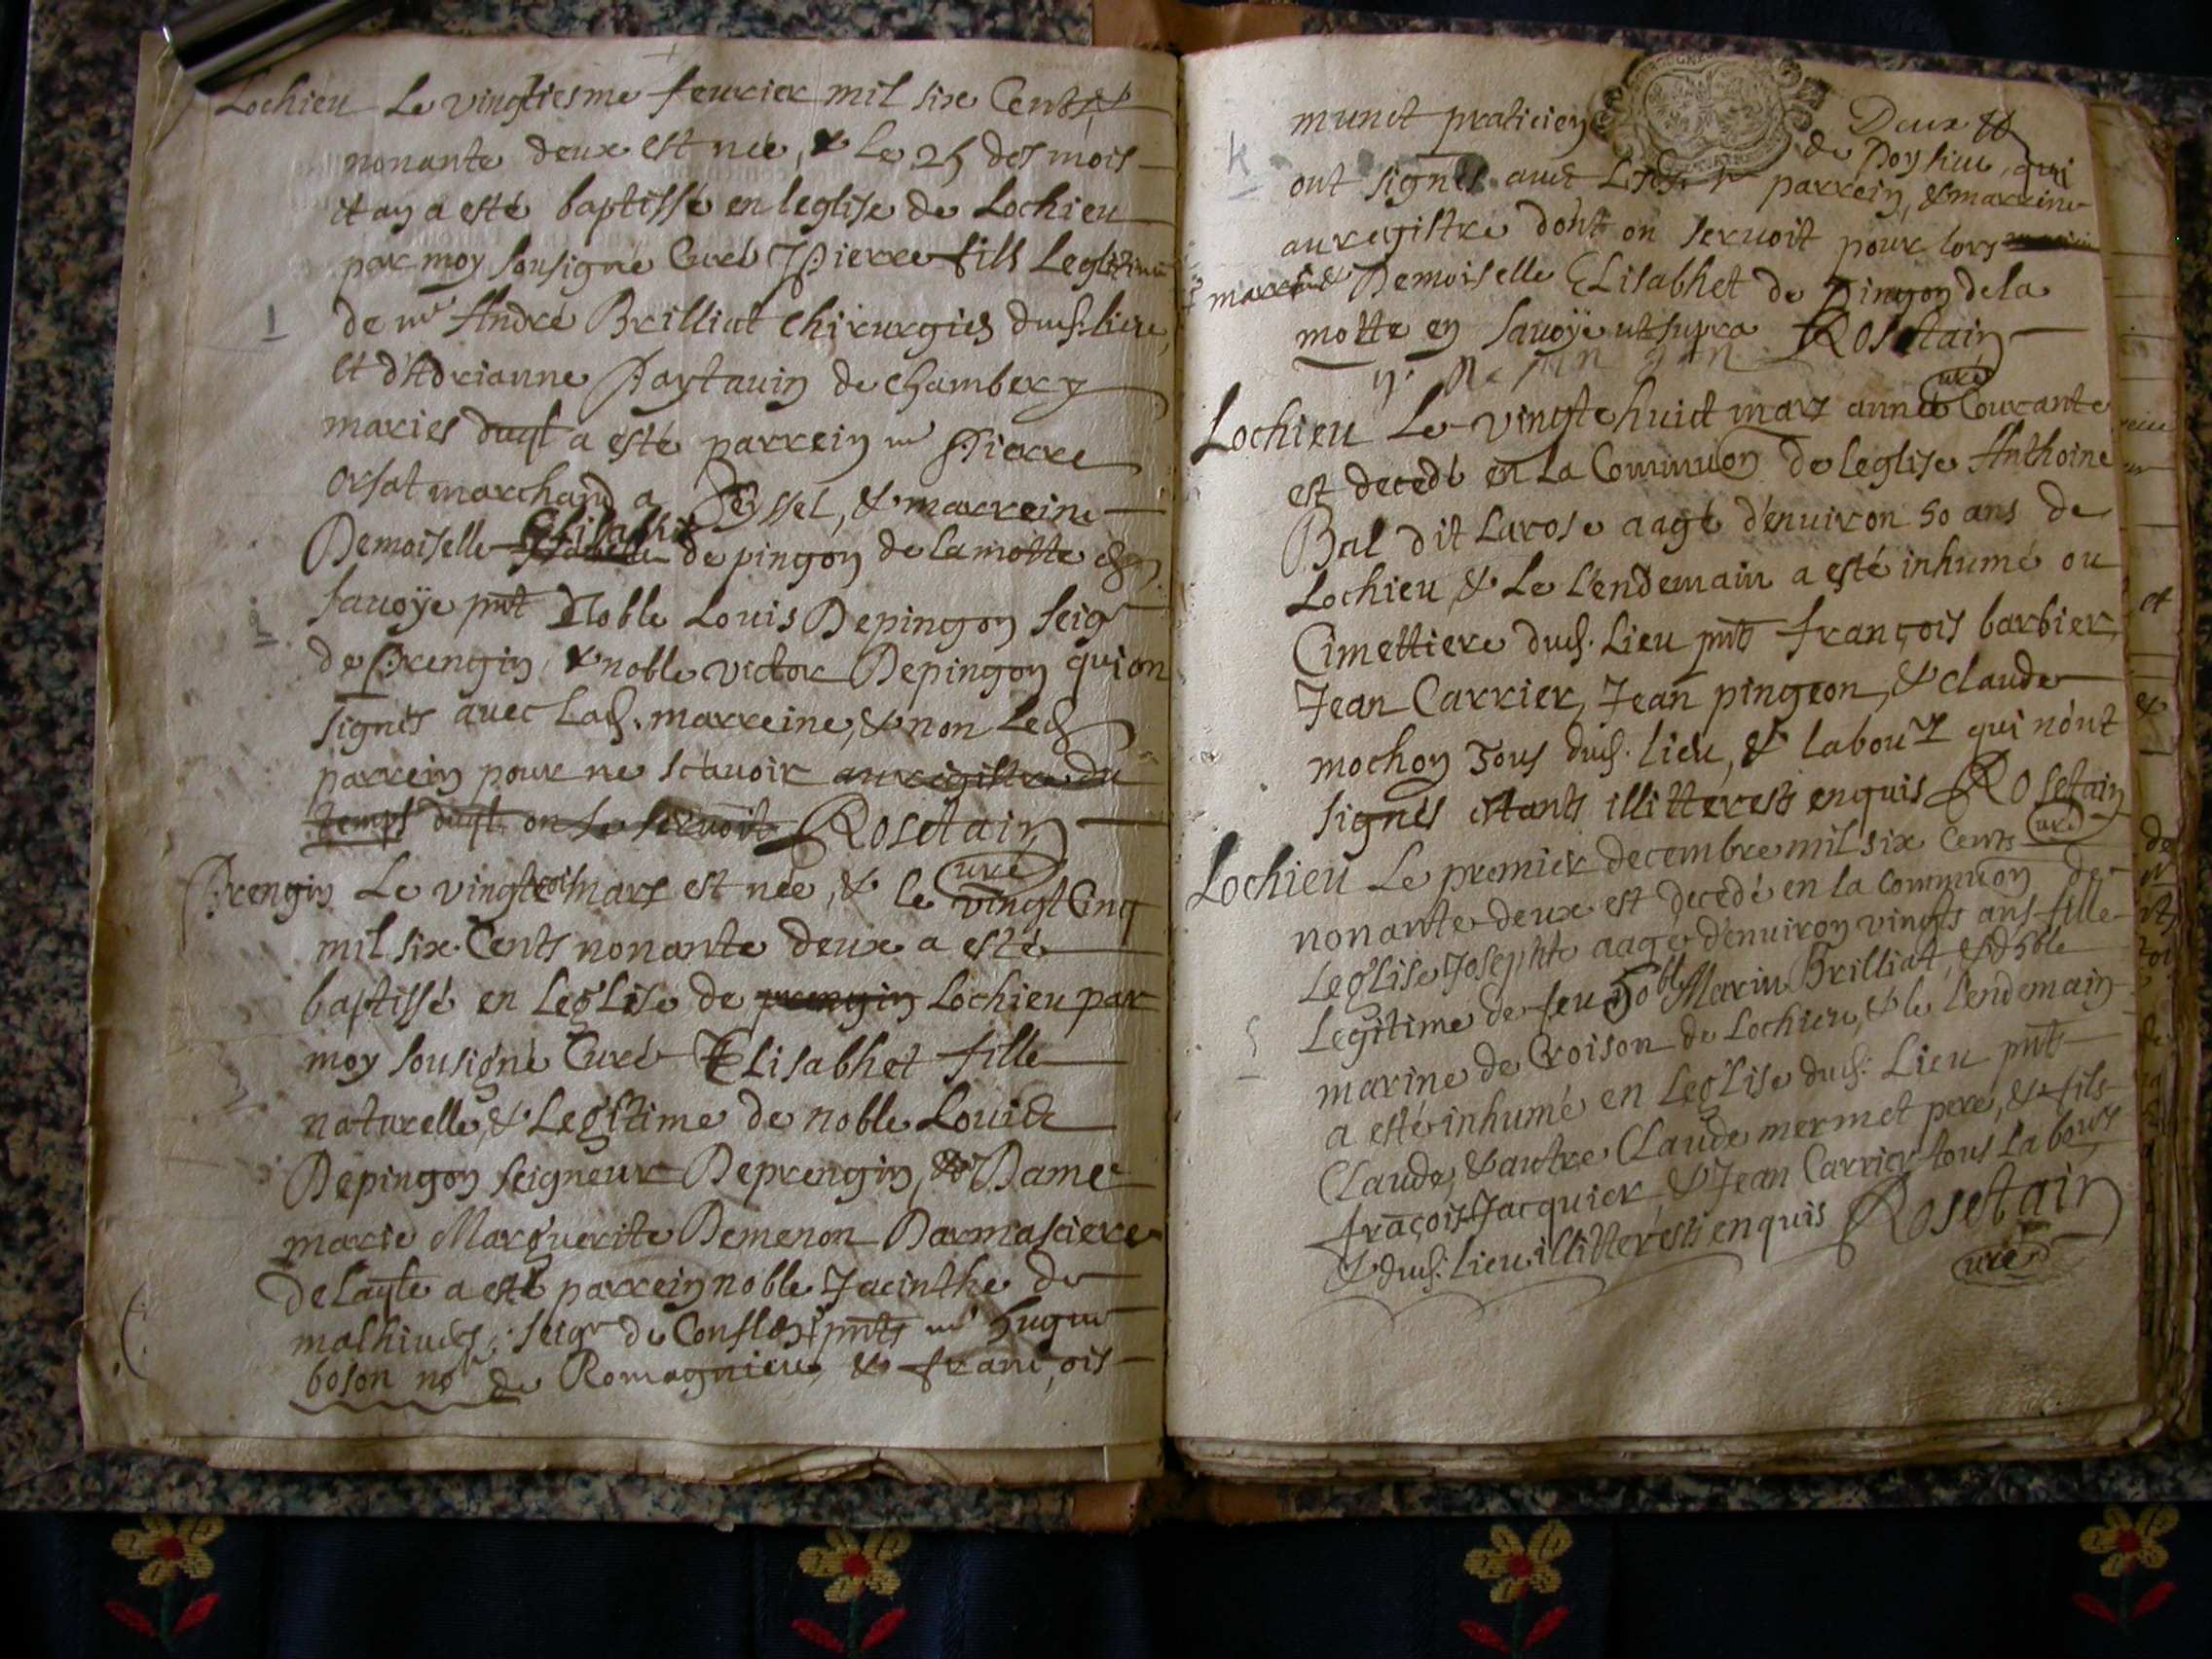 Lochieu Le vingtiesme feurier mil six Cents et
nonante deux est née, & Le 25 des mois
et an a esté baptissé en leglise de Lochieu
par moy sousigne Curé Pierre fils Legitime
de mr André Brilliat chirurgien duds. lieu,
et d'Adrianne Partauin de chambery
maries duqt a esté parrein mr Pierre
orsat marchand a Seyssel, & marreine
Demoiselle Elisabhet de pingon de lamotte en
sauoÿe pnt Noble Louis Depingon seigr
de Prengin, & noble victor Depingon qui on
signés avec Lad. marreine, & non Led
parrein pour ne scauoir au registre du
temps duqt on se seruoit Rosetain
uré
Prengin Le vingtrois mars est née, & le vingt Cinq
mil six Cents nonante deux a esté
baptissé en LegLise de prengin Lochieu par
moy sousigné Curé Elisabhet fille
naturelle, & Legitime de noble Louis
Depingon seigneur Deprengin, & Dame
marie Marguerite Demenon Darmasciere
delaqle a esté parrein noble Jacinthe de
seigr de Conflens pnts mr hugue
boson nore de Romagnieu & francois
munet praticien Deux
de Poysieu, qui
ont signés auec Lesd. parrein, & marreine
au registre dont on seruoit pour lors
marreine Demoiselle ELisabhet de Pingon dela
motte en sauoÿe ut supra Rosetain
uré
Lochieu Le vingte huict mars année Courante
est decedé en La Commuon de leglise Anthoine
Bal dit Larose aagé d'enuiron 50 ans de
Lochieu & Le l'endemain a esté inhumé ou
Cimettiere duds. Lieu pnts françois barbier,
Jean Carrier, Jean pingeon, & claude
mochon Tous duds. lieu, & labourz qui n'ont
signés estants illitterests enquis Rosetain
uré
Lochieu Le premier decembre mil six Cents
nonante deux est decedé en la Commuon de
LegLise Josephte aagée d'enuiron vingts ans fille
Legitime de feu Noble Marin Brilliat, &
marine de Croison de Lochieu, & le l'endemain
a esté inhumé en LegLise duds: Lieu pnts
Claude, & autre Claude mermet pere, & fils
fraçois Jacquier & Jean Carrier tous labours
& duds: Lieu illitterests enquis Rosetain
uré